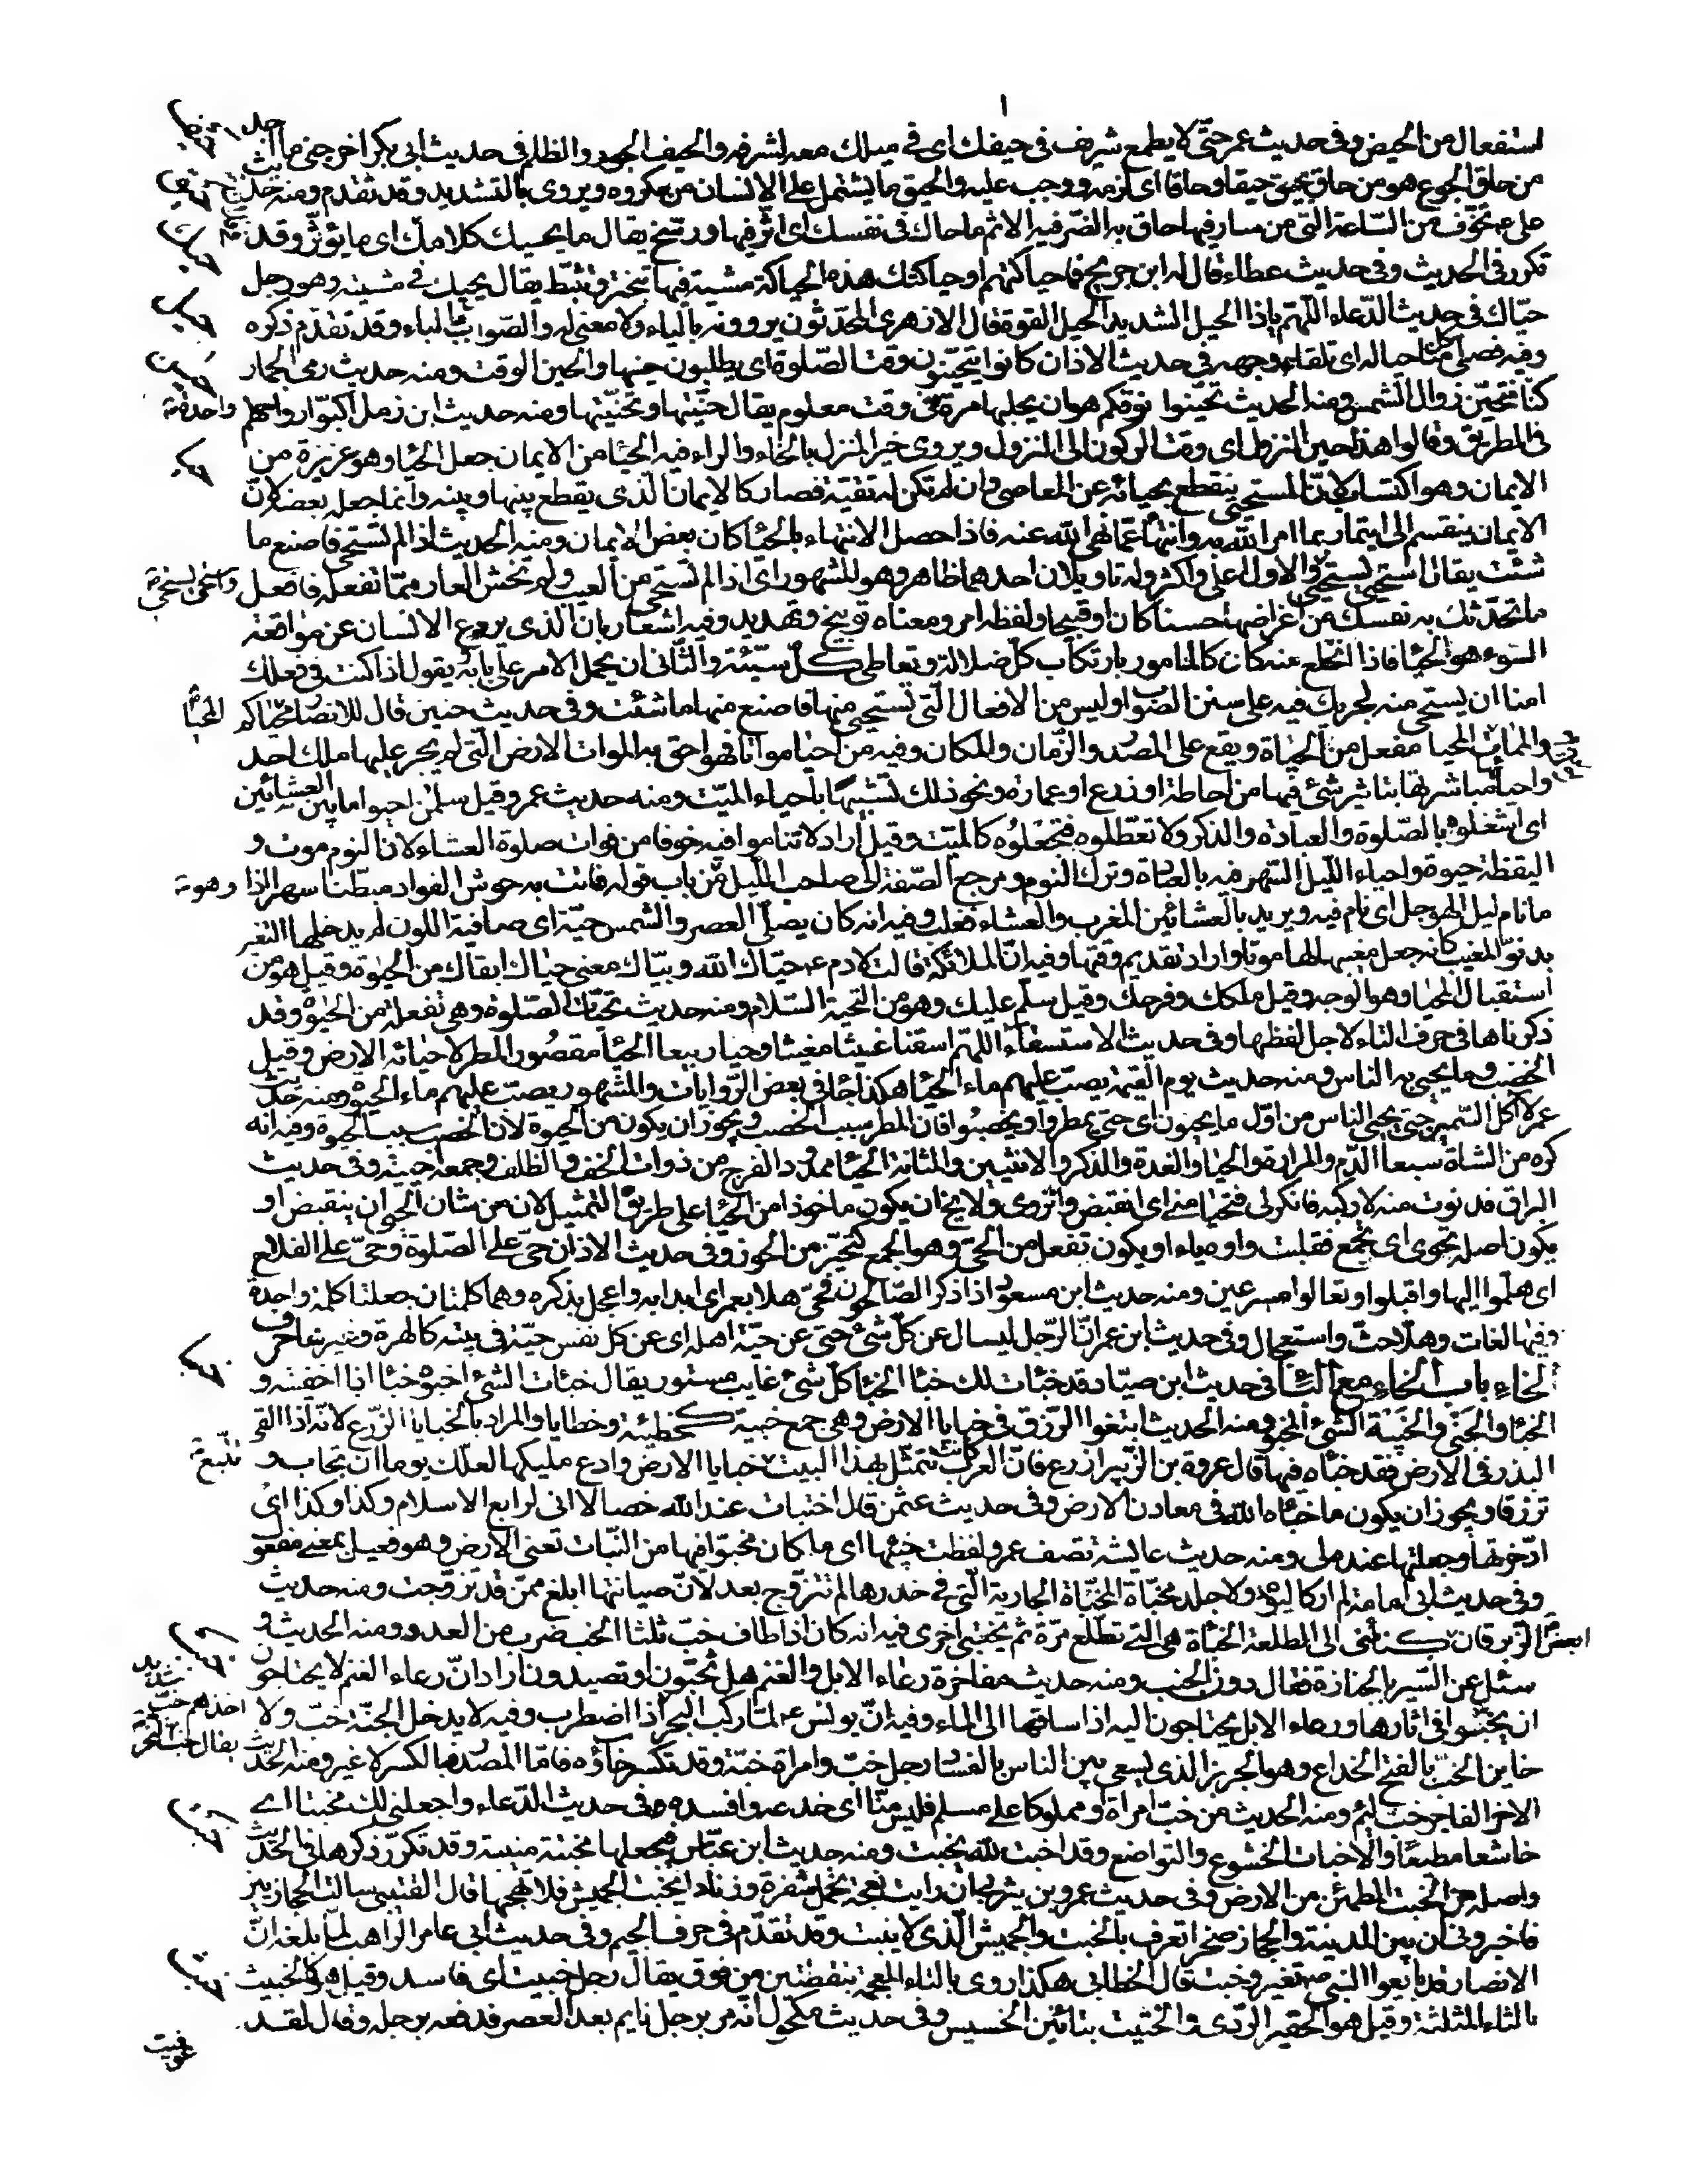 استفعال من الحيض وفى حديث عمر حتّى لا يطمع شريف فى حيفك اى فى ميلك معه لشرفه والحيف الجور والظلم فى حديث ابى بكر اخرجنى ما اجد
من حاق الجوع هو من حاق يحيق حيقا وحاقا اى لزمه ووجب عليه والحيق ما يشتمل على الانسان من مكروه ويروى بالتشديد وقد تقدم ومنه حديث
على تخوّف من السّاعة التّى من سار فيها حاق به الضّر فيه الاثم ما حاك فى نفسك اى اثّر فيها ورسخ يقال ما يحيك كلامك اى ما يؤثّر وقد
تكرر فى الحديث وفى حديث عطاء قال له ابن جريج فما حياكتهم او حياكتك هذه الحياكة مشية فيها تبختر وتثبّط يقال يحيك فى مشيته وهو رجل
حيّاك فى حديث الدّعاء اللّهم ياذا الحيل الشديد الحيل القوة قال الازهرى المحدّثون يروونه بالباء ولا معنى له والصّواب بالياء وقد تقدّم ذكره
وفيه فصلى كل منّا حياله اى تلقاء وجهه فى حديث الاذان كانوا يتحيّنون وقت الصّلوة اى يطلبون حينها والحين الوقت ومنه حديث رمى الجمار
كنّا نتحيّن زوال الشمس ومنه الحديث تحيّنوا نوقكم هو ان يحلبها مرة فى وقت معلوم يقال حيّنتها وتحيّنتها ومنه حديث ابن زمل اكبّوا رواحلهم
فى الطريق وقالوا هذا حين المنزل اى وقت الركون الى المنزول ويروى خير المنزل بالخاء والراء فيه الحياء من الايمان جعل الحياء وهو غريزة من
الايمان وهو اكتساب لانّ المستحيى ينقطع بحيائه عن المعاصى وان لم تكن له تقيّة فصار كالايمان الّذى يقطع بينها وبينه وانما جعله بعضه لانّ
الايمان ينقسم الى ايتمار بما امر اللّه به وانتهاء عمّا نهى اللّه عنه فاذا حصل الانتهاء بالحياء كان بعض الايمان ومنه الحديث اذا لم تستحى فاصنع ما
شئت يقال استحيى يستحيى والاول اعلى واكثر وله تاويلان احدهما ظاهر وهو المشهور اى اذا لم تستحى من العيب ولم تخش العار ممّا تفعله فافعل
ما تحدّثك به نفسك من اغراضها حسنا كان او قبيحا ولفظه امر ومعناه توبيخ وتهديد وفيه اشعار بان الّذى يردع الانسان عن مواقعة
السّوء هو الحياء فاذا انخلع عنه كان كالمامور بارتكاب كلّ ضلالة وتعاطى كلّ سيّئة والثّانى ان يحمل الامر على بابه يقول اذا كنت فى فعلك
امنا ان يستحى منه لجريك فيه على سنن الصّواب وليس من الافعال الّتى تستحيى منها فاصنع منها ما شئت وفى حديث حنين قال للانصار المحيا محياكم
والممات المحيا مفعل من الحياة ويقع على المصدر والزّمان والمكان وفيه من احيا مواتا فهو احق به الموات الارض الّتى لم يجر عليها ملك احد
واحياؤها مباشرتها بتاثير شئ فيها من احاطة او زرع او عمارة ونحو ذلك تشبيها باحياء الميّت ومنه حديث عمر وقيل سلمن احيوا ما بين العشائين
اى اشغلوه بالصّلوة والعبادة والذكر ولا تعطّلوه فتجعلوه كالميّت وقيل اراد لا تناموا فيه خوفا من فوات صلوة العشاء لان النوم موت و
اليقظة حيوة واحياء اللّيل السّهر فيه بالعبادة وترك النوم ومرجع الصّفة الى صاحب اللّيل من باب قوله فاتت به حوش الفواد مبطّنا سهرا اذا
ما نام ليل الهوجل اى نام فيه ويريد بالعشائين المغرب والعشاء فغلب وفيه انه كان يصلّى العصر والشمس حيّة اى صافية اللون لم يدخلها التغير
بدنوّ المغيب كانه جعل مغيبها لها موتا واراد تقديم وقتها وفيه انّ الملائكة قالت لادم حيّاك اللّه وبيّاك معنى حيّاك ابقاك من الحيوة وقيل هو من
استقبال المحيا وهو الوجه وقيل ملكك وفرحك وقيل سلّم عليك وهو من التحيّة السّلام ومنه حديث تحيّات الصّلوة وهى تفعلة من الحيوة وقد
ذكرناها فى حرف التاء لاجل لفظها وفى حديث الاستسقاء اللّهم اسقنا غيثا مغيثا وحيا ربيعا الحيا مقصور المطر لاحيائه الارض وقيل
الخصب وما يحيى به الناس ومنه حديث يوم القيمة يصب عليهم ماء الحيا هكذا جاء فى بعض الرّوايات والمشهور يصبّ عليهم ماء الحيوة ومنه حديث
عمر لا اكل السّمين حتّى يحيى الناس من اوّل ما يحيون اى حتّى يمطروا ويخصبوا فانّ المطر سبب الخصب ويجوز ان يكون من الحيوة لانّ الخصب سبب الحيوة وفيه انه
كره من الشاة سبعا الدّم والمرارة والحياء والغدة والذكر والانثيين والمثانة الحياء ممدود الفرج من ذوات الخف والظلف وجمعه احيية وفى حديث
البراق فدنوت منه لاركبه فانكرنى فتحيّا منى اى انقبض وانزوى ولا يخ ان يكون ماخوذا من الحياء على طريق التمثيل لان من شان الحيى ان ينقبض او
يكون اصله تحوّى اى تجمّع فقلبت واوه ياء او يكون تفعل من الحىّ وهو الجمع كتحيّز من الحوز وفى حديث الاذان حىّ على الصّلوة وحىّ على الفلاح
اى هلمّوا اليها واقبلوا وتعالوا مسرعين ومنه حديث ابن مسعود اذا ذكر الصّالحون فحىّ هلا بعمر اى ابدا به واعجل بذكره وهما كلمتان جعلتا كلمة واحدة
وفيها لغات وهلا حثّ واستعجال وفى حديث ابن عمر انّ الرّجل ليسال عن كلّ شئ حتى عن حيّة اهله اى عن كل نفس حيّة فى بيته كالهرة وغيرها حرف
الخاء باب الخاء مع الباء فى حديث ابن صيّاد قد خبّات لك خبئا الخبأ كلّ شئ غايب مستور يقال خبات الشئ اخبوه خبئا اذا اخفيته و
الخبأ والخبئ والخبيئة الشئ المخبو ومنه الحديث ابتغوا الرّزق فى خبايا الارض وهى جمع خبيئة كخطيئة وخطايا والمراد بالخبايا الزّرع لانّه اذا القى
البذر فى الارض فقد خبّاه فيها قال عروة بن الزّبير ازرع فانّ العرب كانت تتمثّل بهذا البيت تتبّع خبايا الارض وادع مليكها لعلّك يوما ان تجاب و
ترزقا ويجوز ان يكون ما خبّاه اللّه فى معادن الارض وفى حديث عثمن قال اختبات عند اللّه خصالا انى لرابع الاسلام وكذا وكذا اى
ادّخرتها وجعلتها عنده لى ومنه حديث عايشة تصف عمر ولفظت خبيئها اى ما كان مخبوا فيها من النّبات تعنى الارض وهو فعيل بمعنى مفعول
وفى حديث ابى امامة لم ار كاليوم ولا جلد مخبّاة المخبّاة الجارية الّتى فى خدرها لم تتزوّج بعد لانّ صيانتها ابلغ ممّن قد تزوّجت ومنه حديث
الزبرقان ابغض كنائنى الى الطلعة الخباة هى الّتى تطّلع مرّة ثم تختبى اخرى فيه انه كان اذا طاف خبّ ثلثا الخبب ضرب من العدو ومنه الحديث و
سئل عن السّير بالجنازة فقال دون الخبب ومنه حديث مفاخرة رعاء الابل والغنم هل تخبّون او تصيدون اراد انّ رعاء الغنم لا يحتاجون
ان يخبّوا فى اثارها ورعاء الابل يحتاجون اليه اذا ساقوها الى الماء وفيه انّ يونس لمّا ركب البحر اخذهم خبّ شديد يقال خبّ البحر اذا اضطرب وفيه لا يدخل الجنّة خبّ ولا
خاين الخبّ بالفتح الخداع وهو الجربز الذى يسعى بين الناس بالفساد رجل خبّ وامراة خبّة وقد تكسر خاؤه فامّا المصدر فبالكسر لا غير ومنه الحديث
الاخر الفاجر خبّ لئيم ومنه الحديث من خبّب امراة او مملوكا على مسلم فليس منّا اى خدعه وافسده وفى حديث الدّعاء واجعلنى لك مخبتا اى
خاشعا مطيعا والاخبات الخشوع والتواضع وقد اخبت للّه يخبت ومنه حديث ابن عبّاس فيجعلها مخبتة منيبة وقد تكرّر ذكرها فى الحديث
واصله من الخبت المطمئن من الارض وفى حديث عمرو بن يثربى ان رايت نعجة تحمل شفرة وزنادا بخبت الجميش فلا تهجها قال القتيبى سالت الحجازيين
فاخبرونى ان بين المدينة والحجاز صحراء تعرف بالخبت والجميش الّذى لا ينبت وقد تقدّم فى حرف الجيم وفى حديث ابى عامر الرّاهب لمّا بلغه انّ
الانصار قد بايعوا النبى تغير وخبت قال الخطابى هكذا روى بالتاء المعجمة بنقطتين من فوق يقال رجل خبيت اى فاسد وقيل هو كالخبيث
بالثاء المثلثة وقيل هو الحقير الرّدى والختيت بتائين الخسيس وفى حديث مكحول انّه مر برجل نايم بعد العصر فدفعه برجله وقال لقد
عوفيت